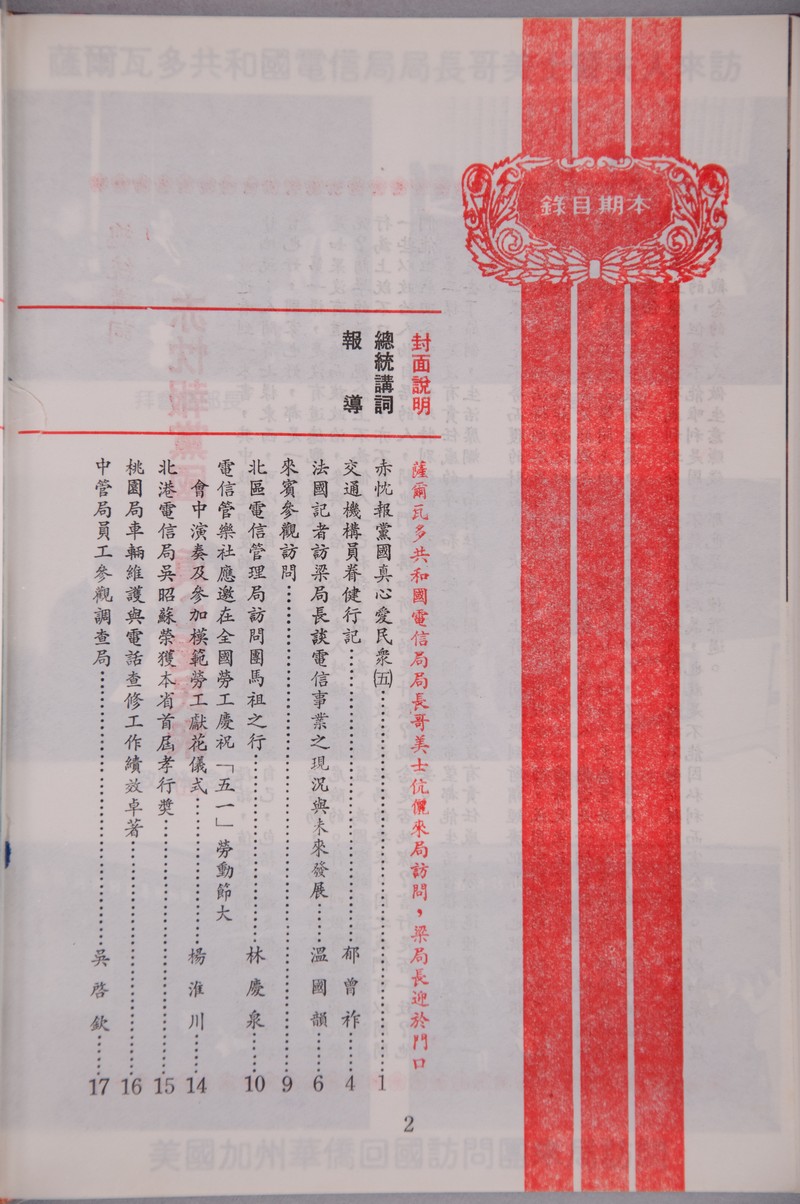 本期目錄
封面說明
薩爾瓦多共和國電信局局長哥美士伉儷來局訪問，梁局長迎於門口
總統講詞
赤忱報黨國真心愛民衆㈤……1
報導
交通機構員眷健行記……郁曾祚……4
法國記者訪梁局長談電信事業之現況與未來發展……溫國韻……6
來賓參觀訪問……9
北區電信管理局訪問團馬祖之行……林慶泉……10
電信管樂社應邀在全國勞工慶祝「五一」勞動節大
會中演奏及參加模範勞工獻花儀式……楊淮川……14
北港電信局吳昭蘇榮獲本省首屆孝行獎……15
桃園局車輛維護與電話查修工作績效卓著……16
中管局員工參觀調查局……吳啓欽……17
2
薩爾瓦多共和國電信局局長哥美士
來訪
美國加州華僑回國訪問團